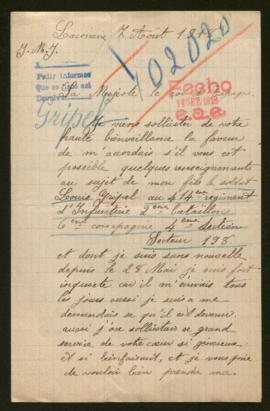 7 Août 191
J. M. J.
102020
Pedir informes
Fecho
14 SEP. 1918
Sa Majesté le
Gripel
Je viens sollisiter de votre
haute bienveillance la faveur
de m'accordais s'il vous est
possible quelques renseignements
au sujet de mon fils le soldat
Louis Gripel au 414me régiment
d'Infanterie 2me bataillon
6me compagnie 4eme section
Secteur 198
et dont je suis sans nouvelle
depuis le 28 Mai je suis fort
inquiete car il m'écrivais tous
les jours aussi je suis a me
demandais se qu'il est devenu
aussi j'en sollisitais se grand
service de votre cœur si généreux
et si bienfaisant, et je vous prie
de vouloir bien prendre ma